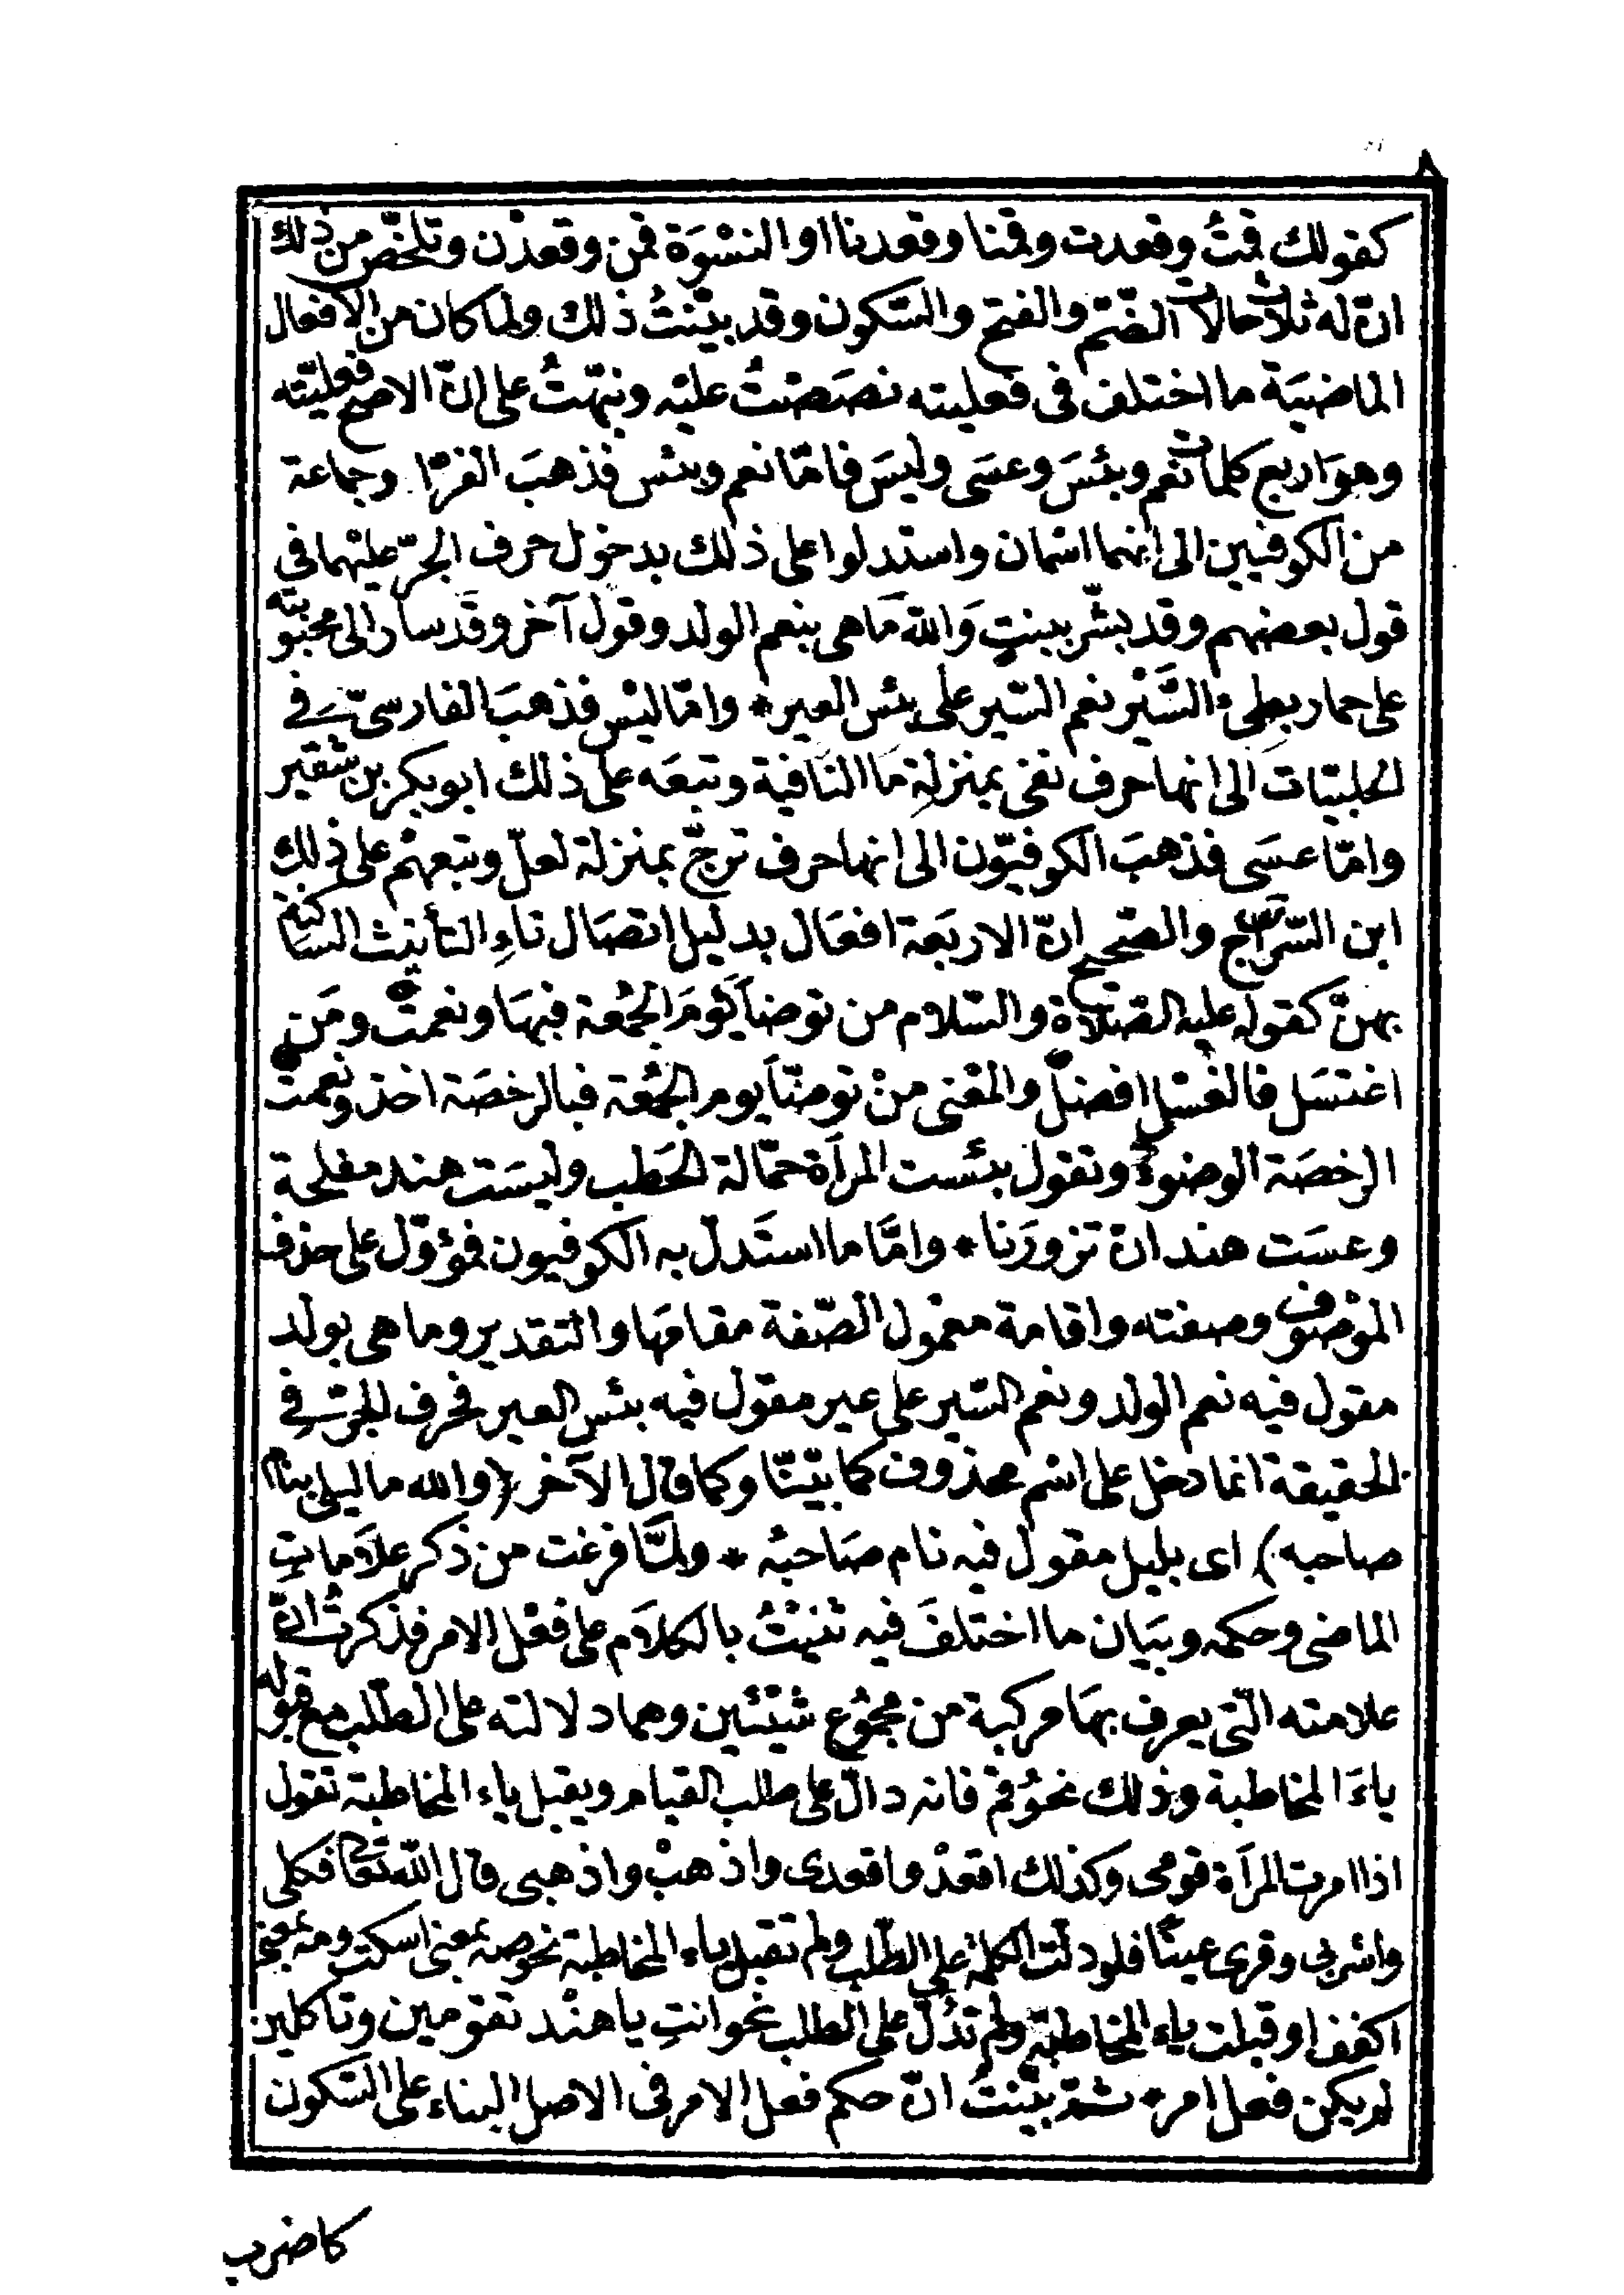 ٨
كقولك قمتُ وقعدت وقمنا وقعدنا او النسْوَة قمن وقعدْن وتلخّص من ذلك
انّ له ثلاث حالات الضّم والفتح والسّكون وقد بيّنتُ ذلك ولما كان من الافعال
الماضيَة ما اختلف فى فعليته نصَصْتُ عليْه ونبّهتُ على انّ الاصح فعليّته
وهوَ اربع كلمات نعْم وبئسَ وعسَى وليسَ فامّا نعم وبئس فذهبَ الفرّاء وجماعة
من الكوفيين الى انهما اسْمان واستدلوا على ذلك بدخول حرف الجرّ عليْهما فى
قول بعضهم وقد بشّر ببنتٍ وَاللّه مَا هى بنعم الولد وقول آخر وقَد سار الى محبوبته
على حمار بطِىء السَّيْر نعم السّير على بئس العير * وامّا ليْس فذهبَ الفارسىّ فى
الحلبيّات الى انها حرف نفى بمنزلةِ مَا النّافية وتبعَه على ذلك ابو بكر بن شقير
وامّا عسَى فذهبَ الكوفيّون الى انها حرف ترجّ بمنزلة لعلّ وتبعهْم على ذلك
ابن السّراج والصّحيح انّ الاربَعة افعَال بدليل اتصَال تاءِ التأنيث الساكنة
بهنّ كقوله عليه الصّلاة والسّلام من توضأ يَوْمَ الجمُعة فبهَا ونعمتْ ومَن
اغتسَل فالغسْل افضلُ والمعْنى منْ توضّأ يوم الجمُعة فبالرخصَة اخذ ونعمتْ
الرخصَة الوضوءُ وتقول بئست المرأة حمّالة الحَطب وليسَت هند مفلحة
وعسَت هند ان تزورَنا * وامَّا ما استَدلّ به الكوفيون فمؤوّل على حذف
الموْصوف وصفته واقامة معمُول الصّفة مقامَها والتقدير وما هى بولد
مقول فيه نعم الولد ونعم السّير على عير مقول فيه بئس العير فحرف الجرّ فى
الحقيقة انما دخل على اسْم محذوف كما بيّنّا وكما قال الآخر (والله ما ليلى بنام
صاحبه) اى بليل مقول فيه نام صَاحبُه * ولمَّا فرغت من ذكر علاَماتِ
الماضى وحكمه وبيَان ما اختلفَ فيه ثنيْتُ بالكلاَم على فعْل الامر فذكرتُ انّ
علامته الّتى يعرف بهَا مركبة من مجمُوع شيْئين وهما دلالته على الطّلب مع قبوله
ياءَ المخاطبة وذلك نحوُ قمْ فانه دالّ على طلب القيام ويقبل ياء المخاطبة تقول
اذا امرت المرأة قومى وكذلك اقعدْ واقعدى واذهبْ واذهبى قال اللّه تعالى فكلى
واشربى وقرى عينًا فلو دلّت الكلمةُ على الطّلب ولم تقبل ياء المخاطبة نحو صه بمعنى اسكت ومه بمعنى
اكفف او قبلت ياء المخاطبة ولم تدُلّ على الطلب نحو انتِ يا هنْد تقومين وتأكلين
لم يكن فعل امر * ثمّ بيّنتُ انّ حكم فعل الامر فى الاصل البناء على السّكون
كاضرب